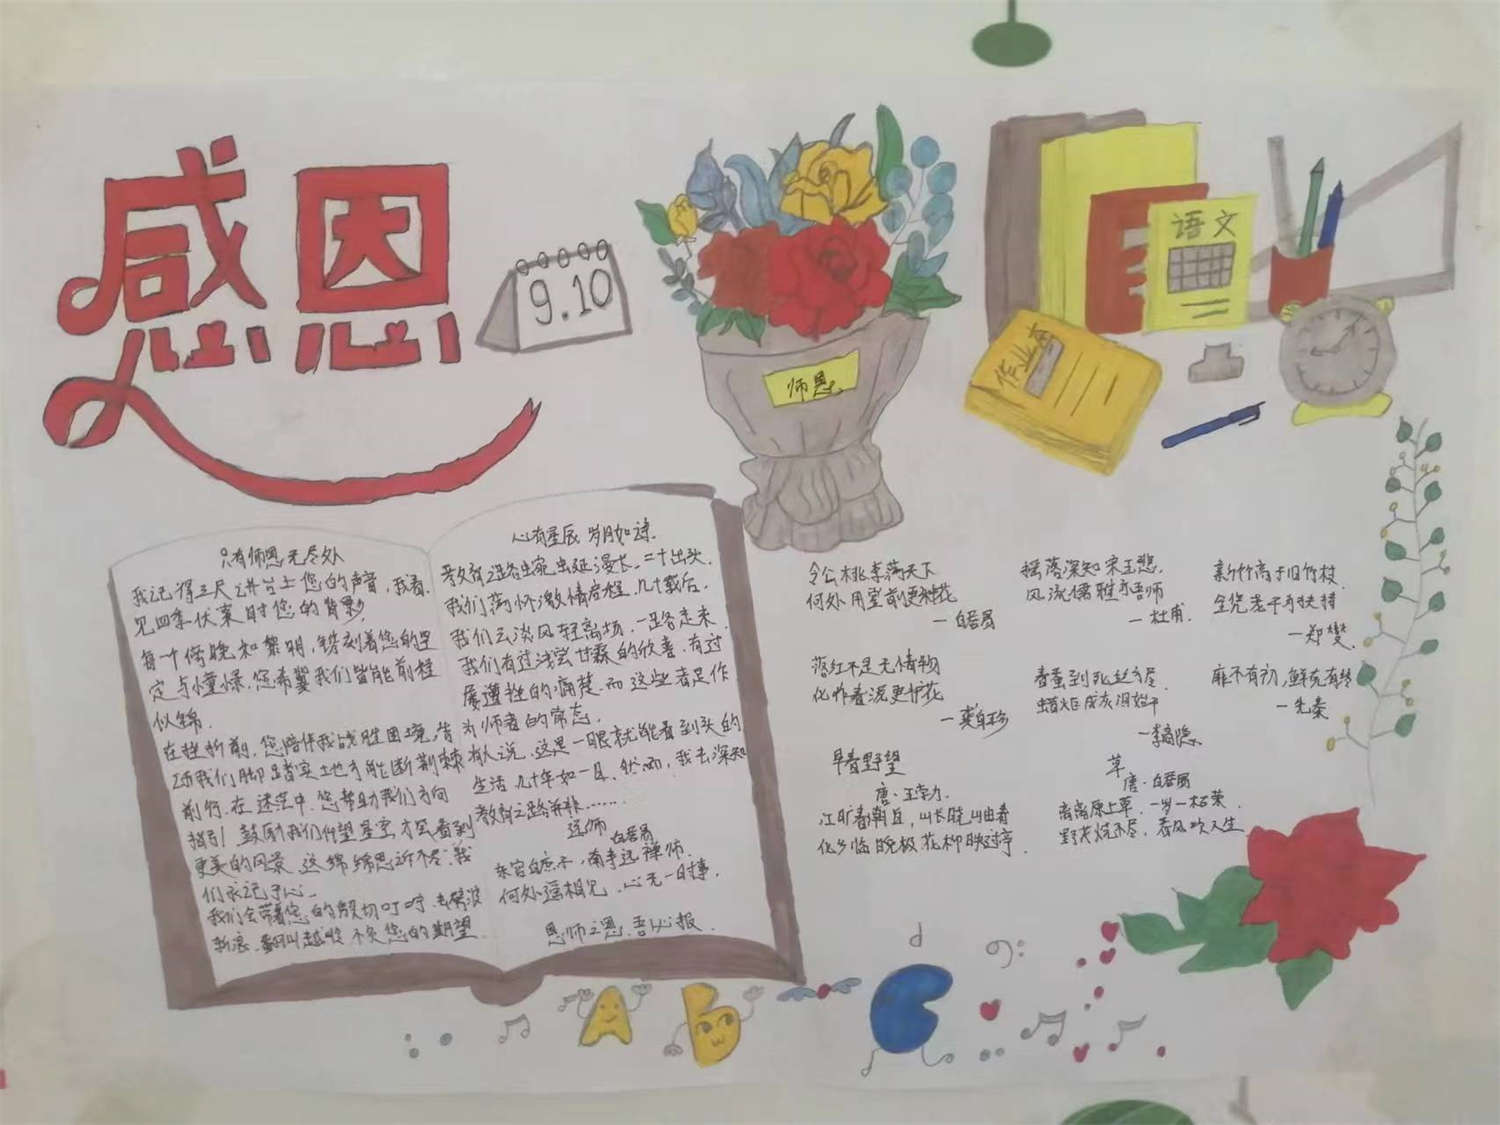 感恩
9.10
师恩
语文
作业本
只有师恩无尽处
我记得三尺讲台上您的声音,我看
见四季伏案时您的背影,
每一个傍晚和黎明,镌刻着您的坚
定与憧憬,您希冀我们皆能前程
似锦.
在挫折前,您陪伴我战胜困境,告
诉我们脚踏实地才能斩断荆棘
前行.在迷茫中,您帮助我们方向
指引,鼓励我们仰望星空,才会看到
更美的风景.这绵绵恩诉不尽,我
们永记于心.
我们会带着您的殷切叮咛,去劈波
斩浪,翻山越岭,不负您的期望
心有星辰 岁月如诗.
教育之路蜿蜒漫长,二十出头,
我们满怀激情启程,几十载后,
我们云淡风轻离场,一路走来,
我们有过浅尝甘霖的欣喜,有过
屡遭挫的痛楚,而这些都是作
为师者的常态.
有人说,这是一眼就能看到头的
生活,几十年如一日,然而,我去深知
教育之路并非……
远师
白居易
东宫白庶子,南寺远禅师.
何处遥相见,心无一时事.
恩师之恩,吾必报.
令公桃李满天下
何处用堂前更种花
—白居易
摇落深知宋玉悲,
风流儒雅亦吾师
—杜甫.
新竹高于旧竹枝
全凭老干为扶持
—郑燮.
落红不是无情物
化作春泥更护花
—龚自珍
春蚕到死丝方尽
蜡炬成灰泪始干
—李商隐.
靡不有初,鲜克有终
—先秦
早春野望
唐·王勃.
江旷春潮白,山长晓岫青
他乡临睨极,花柳映边亭.
草
唐·白居易
离离原上草,一岁一枯荣.
野火烧不尽,春风吹又生
A
B
C